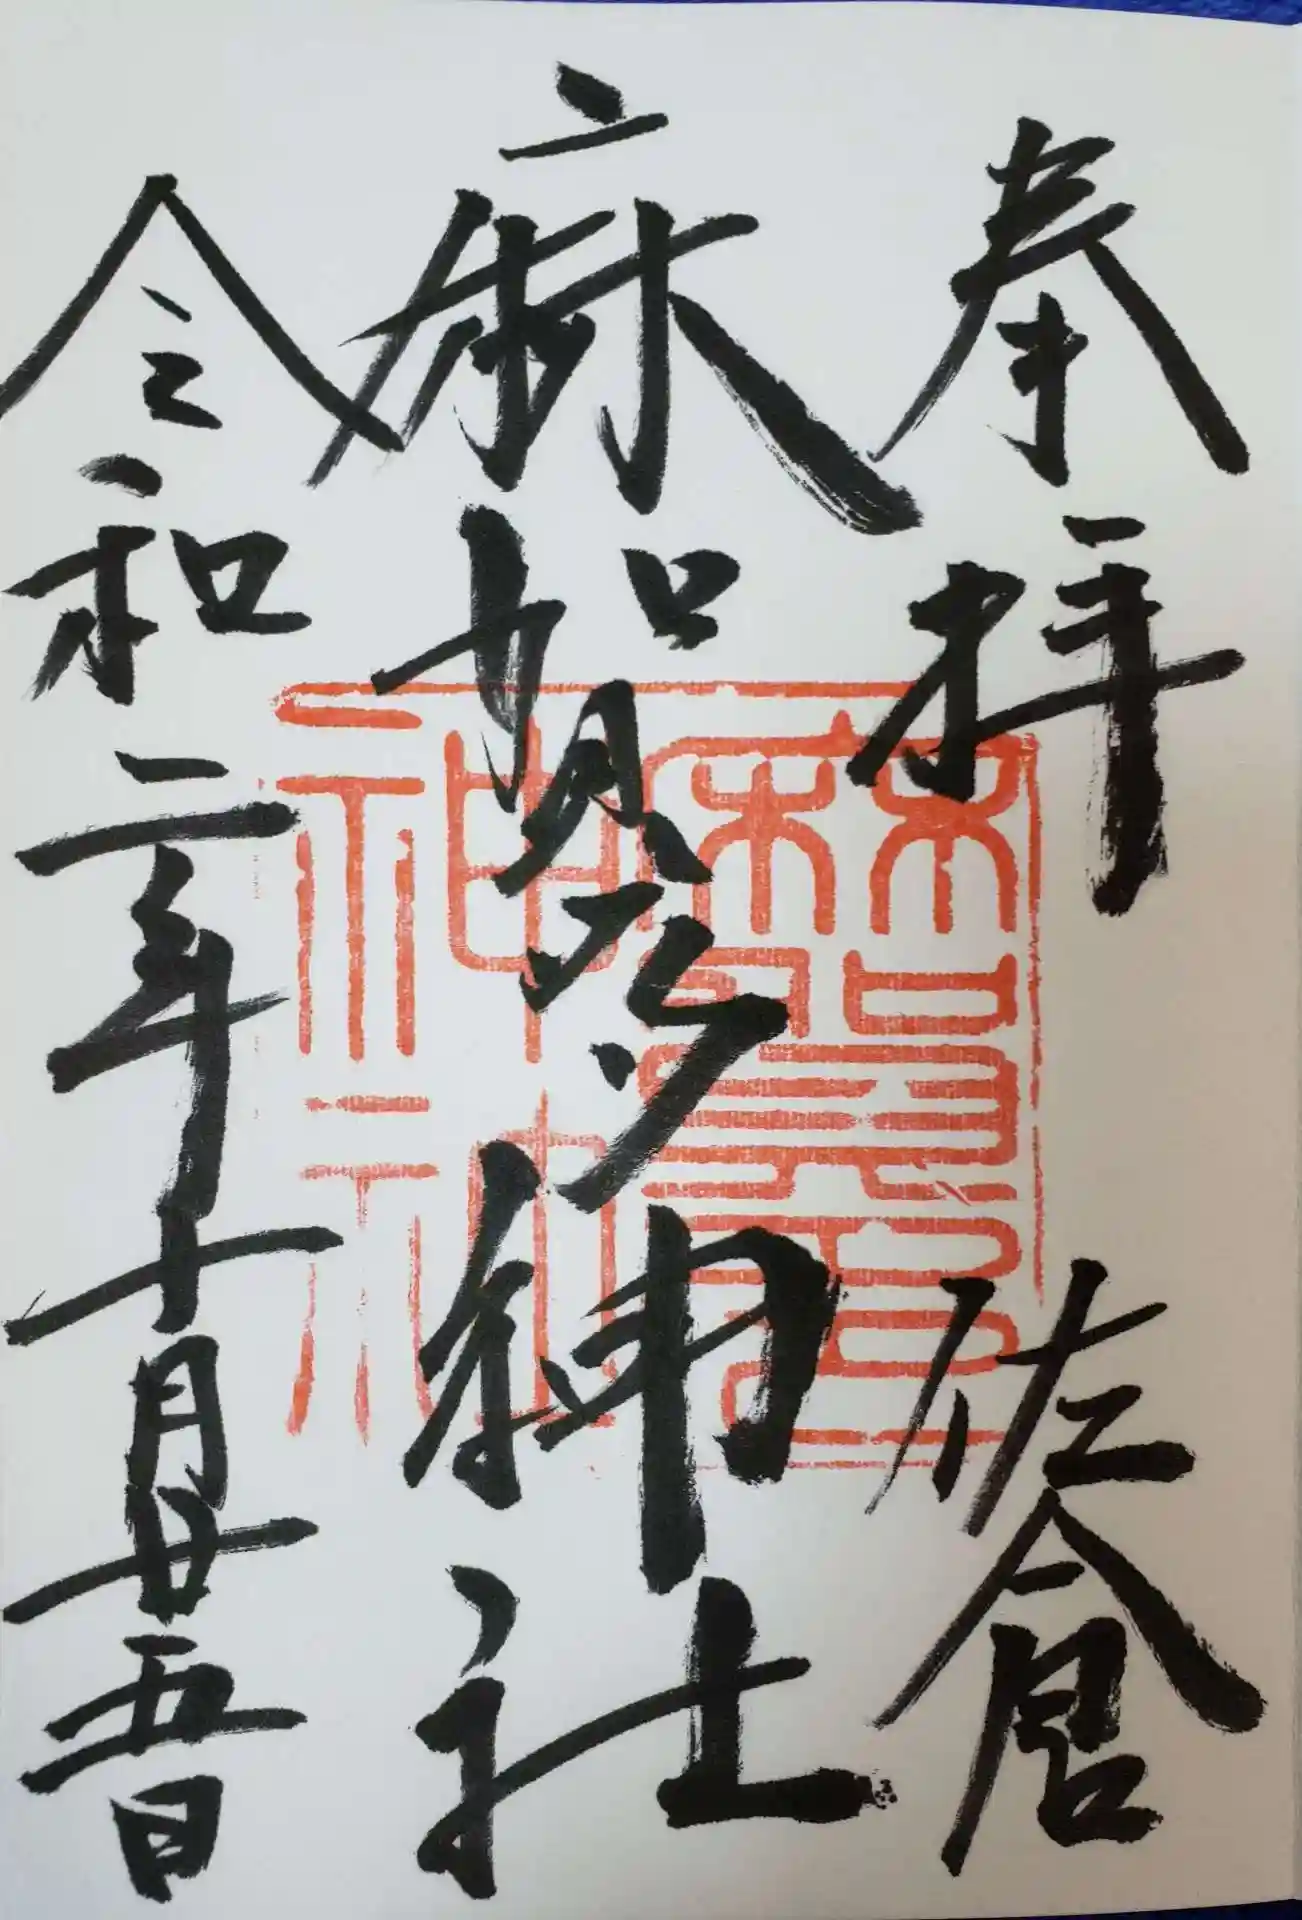 奉拝 佐倉
麻賀多神社
令和二年十月廿五日
麻賀多
神社